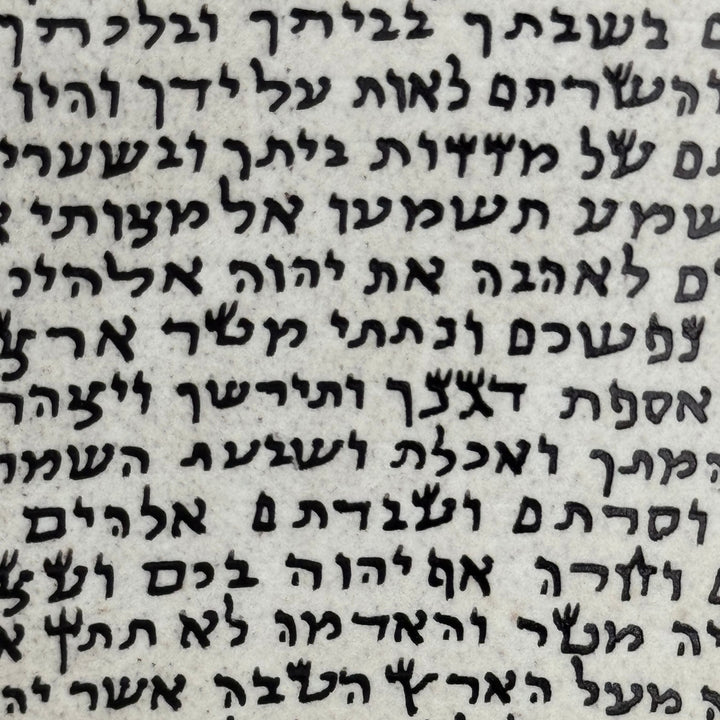 בשבתך בביתך ובלכתך
והשרתם לאות על ידך והיו
של ביתך ובשערי
שמע תשמעו אל מצותי
לאהבה את יהוה אלהיכ
צפשכם ונתתי מטר ארצ
אספת דצצך ותירשך ויצהר
המתך ואכלת ושבעת השמר
וסרתם ושבדתם אלהים
וחרה אף יהוה בכם
מטר והאדמה לא תתץ
מעל הארץ הטבה אשר יה